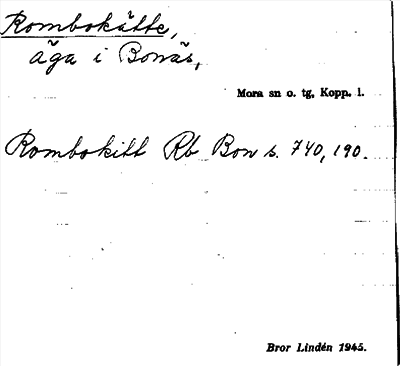 Rombokätte,
äga i Bonäs,
Mora sn o. tg, Kopp. l.
Rombokitt Rb Bon s. 740, 190.
Bror Lindén 1945.